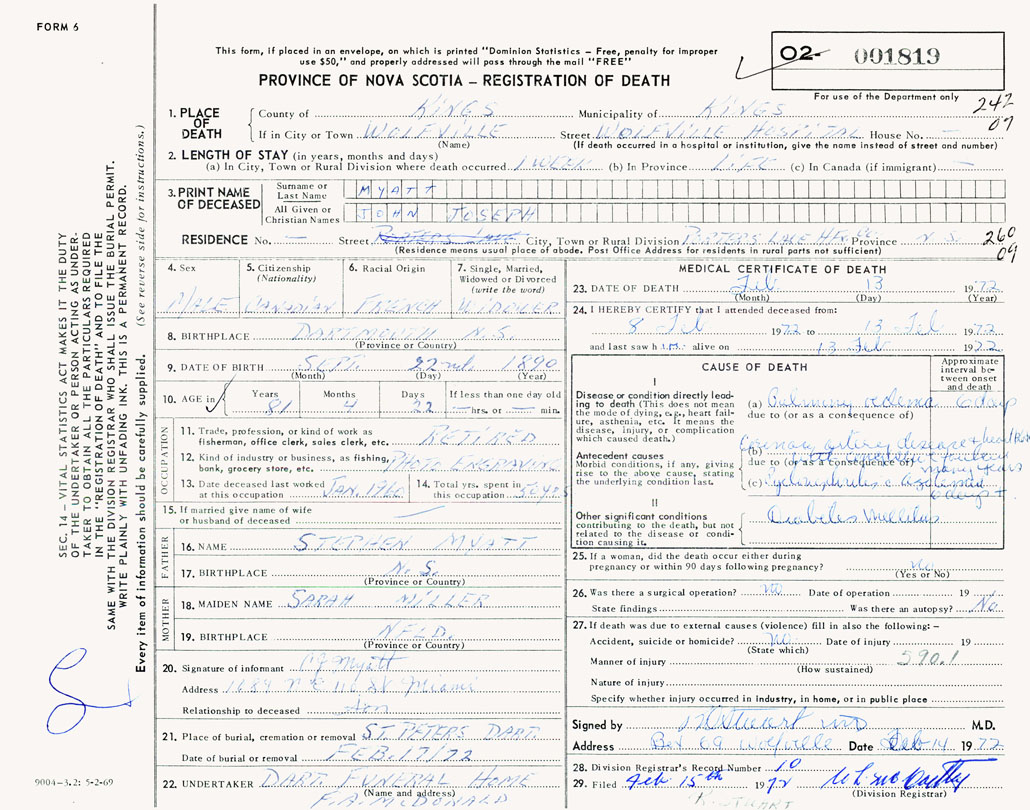 FORM 6
This form, if placed in an envelope, on which is printed "Dominion Statistics – Free, penalty for improper
use $50," and properly addressed will pass through the mail "FREE"
PROVINCE OF NOVA SCOTIA – REGISTRATION OF DEATH
02- 001819
For use of the Department only
242
07
1. PLACE OF DEATH
County of KINGS Municipality of KINGS
If in City or Town WOLFVILLE Street WOLFVILLE HOSPITAL House No. —
(Name) (If death occurred in a hospital or institution, give the name instead of street and number)
2. LENGTH OF STAY (in years, months and days)
(a) In City, Town or Rural Division where death occurred 1 WEEK (b) In Province LIFE (c) In Canada (if immigrant) —
3. PRINT NAME OF DECEASED
Surname or Last Name MYATT
All Given or Christian Names JOHN JOSEPH
RESIDENCE No. — Street PORTERS LAKE City, Town or Rural Division PORTERS LAKE HFX CO. Province N.S.
(Residence means usual place of abode. Post Office Address for residents in rural parts not sufficient)
260
09
4. Sex MALE
5. Citizenship (Nationality) CANADIAN
6. Racial Origin FRENCH
7. Single, Married, Widowed or Divorced (write the word) WIDOWER
8. BIRTHPLACE DARTMOUTH N.S.
(Province or Country)
9. DATE OF BIRTH SEPT. 22nd. 1890
(Month) (Day) (Year)
10. AGE in Years 81 Months 4 Days 22 If less than one day old — hrs. or — min.
OCCUPATION
11. Trade, profession, or kind of work as fisherman, office clerk, sales clerk, etc. RETIRED
12. Kind of industry or business, as fishing, bank, grocery store, etc. PHOTO ENGRAVING
13. Date deceased last worked at this occupation JAN. 1960
14. Total yrs. spent in this occupation 50 yrs
15. If married give name of wife or husband of deceased —
FATHER
16. NAME STEPHEN MYATT
17. BIRTHPLACE N.S.
(Province or Country)
MOTHER
18. MAIDEN NAME SARAH MILLER
19. BIRTHPLACE NFLD.
(Province or Country)
20. Signature of informant Myatt
Address 1684 N E 110 St Miami
Relationship to deceased son
21. Place of burial, cremation or removal ST. PETERS DART.
Date of burial or removal FEB. 17/72
22. UNDERTAKER DART. FUNERAL HOME
(Name and address)
F.A. MCDONALD
MEDICAL CERTIFICATE OF DEATH
23. DATE OF DEATH Feb 13 1972
(Month) (Day) (Year)
24. I HEREBY CERTIFY that I attended deceased from:
8 Feb 1972 to 13 Feb 1972
and last saw h im alive on 13 Feb 1972
CAUSE OF DEATH
Approximate interval between onset and death
I
Disease or condition directly leading to death (This does not mean the mode of dying, e.g., heart failure, asthenia, etc. It means the disease, injury, or complication which caused death.)
(a) Pulmonary edema 6 days
due to (or as a consequence of)
Antecedent causes
Morbid conditions, if any, giving rise to the above cause, stating the underlying condition last.
(b) Coronary artery disease & heart block
with congestive failure
many years
due to (or as a consequence of)
(c) Azotemia
6 days +
II
Other significant conditions contributing to the death, but not related to the disease or condition causing it.
Diabetes Mellitus
25. If a woman, did the death occur either during pregnancy or within 90 days following pregnancy? no
(Yes or No)
26. Was there a surgical operation? no Date of operation 19
State findings Was there an autopsy? No
27. If death was due to external causes (violence) fill in also the following: –
Accident, suicide or homicide? no Date of injury 19
(State which)
Manner of injury 590.1
(How sustained)
Nature of injury
Specify whether injury occurred in industry, in home, or in public place
Signed by Stewart MD M.D.
Address Box 69 Wolfville Date Feb 14 1972
28. Division Registrar's Record Number 10
29. Filed Feb 15th 1972
(Division Registrar)
SEC. 14 – VITAL STATISTICS ACT MAKES IT THE DUTY
OF THE UNDERTAKER OR PERSON ACTING AS UNDER-
TAKER TO OBTAIN ALL THE PARTICULARS REQUIRED
IN THE "REGISTRATION OF DEATH" AND TO FILE THE
SAME WITH THE DIVISION REGISTRAR WHO SHALL ISSUE THE BURIAL PERMIT.
WRITE PLAINLY WITH UNFADING INK. THIS IS A PERMANENT RECORD.
Every item of information should be carefully supplied. (See reverse side for instructions.)
9004-3.2: 5-2-69